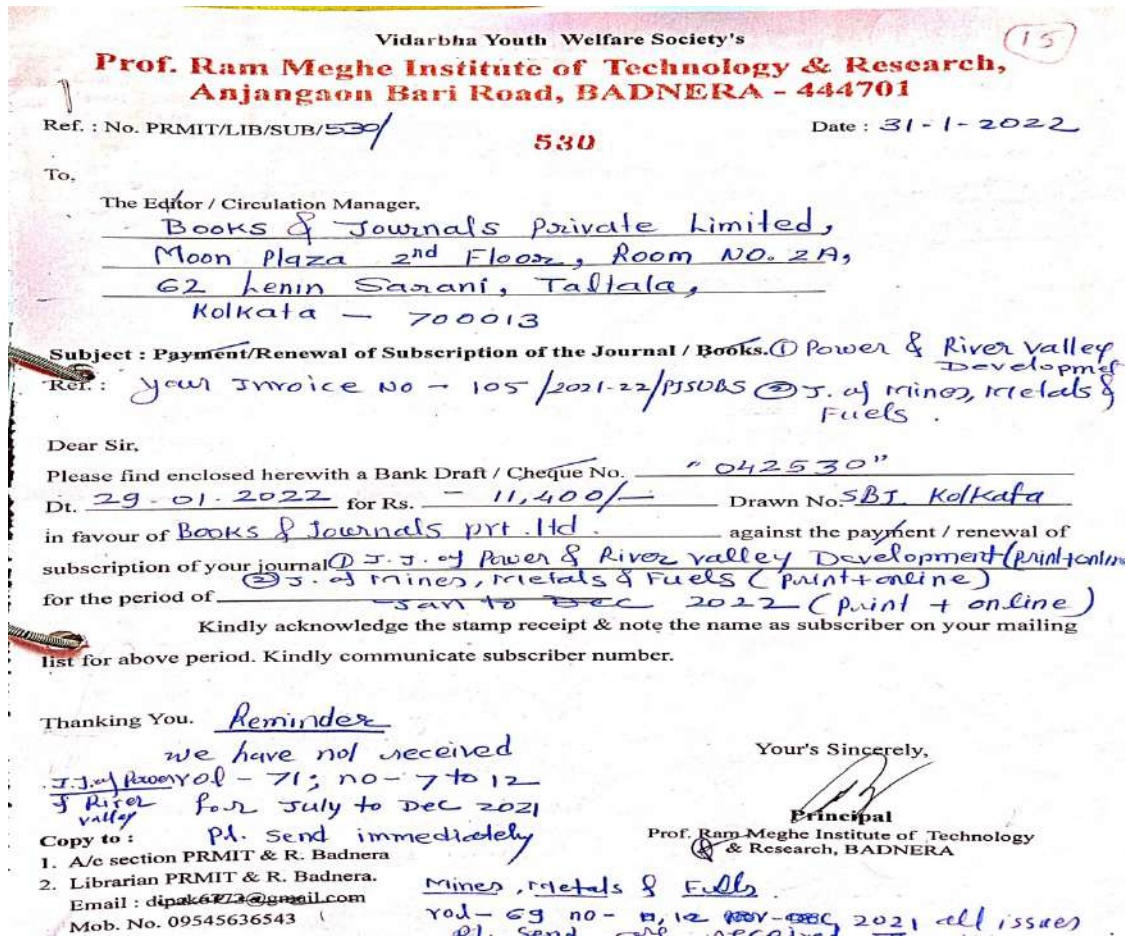 15
Vidarbha Youth Welfare Society's
Prof. Ram Meghe Institute of Technology & Research,
Anjangaon Bari Road, BADNERA - 444701
Ref. : No. PRMIT/LIB/SUB/530/
Date : 31-1-2022
530
To,
The Editor / Circulation Manager,
Books & Journals Private Limited,
Moon Plaza 2nd Floor, Room NO. 2A,
62 Lenin Sarani, Taltala,
Kolkata - 700013
Subject : Payment/Renewal of Subscription of the Journal / Books. ① Power & River Valley
Developmet
Ref. : your Invoice No - 105/2021-22/PJSUBS ② J. of Mines, Metals &
Fuels.
Dear Sir,
Please find enclosed herewith a Bank Draft / Cheque No. "042530"
Dt. 29.01.2022 for Rs. - 11,400/- Drawn No. SBI Kolkata
in favour of Books & Journals prt.ltd. against the payment / renewal of
subscription of your journal ① I.J. of Power & River valley Development (print+online
② J. of Mines, Metals & Fuels (print+online)
for the period of Jan to Dec 2022 (print + online)
Kindly acknowledge the stamp receipt & note the name as subscriber on your mailing
list for above period. Kindly communicate subscriber number.
Thanking You. Reminder
we have not received
I.J. of Power vol - 71; no - 7 to 12
& River valley for July to Dec 2021
Pl. send immediately
Your's Sincerely,
Principal
Prof. Ram Meghe Institute of Technology
& Research, BADNERA
Copy to :
1. A/c section PRMIT & R. Badnera
2. Librarian PRMIT & R. Badnera.
Email : dipak6773@gmail.com
Mob. No. 09545636543
Mines, Metals & Fulls
vol- 69 no- 12 2021 all issues
Pl. send received